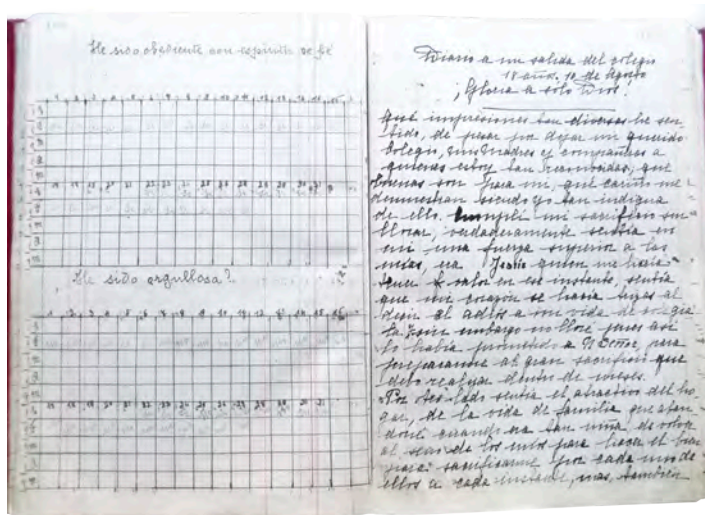 He sido obediente con espíritu de fé
He sido orgullosa?
Diario a mi salida del colegio
18 años. 10 de Agosto
¡Gloria a solo Dios!
Qué impresiones tan diversas he sen-
tido, de pesar por dejar mi querido
Colegio, mis Madres y compañeras a
quienes estoy tan reconocida; qué
buenas son para mí, qué cariño me
demuestran siendo yo tan indigna
de ello. Cumplí mi sacrificio sin
llorar, verdaderamente sentía en
mí una fuerza superior a las
mías, era Jesús quien me hacía
tener valor en ese instante, sentía
que mi corazón se hacía trizas al
decir el adiós a mi vida de colegia
la y sin embargo no lloré pues así
lo había prometido a N Señor, para
prepararme al gran sacrificio que
debo realizar dentro de meses.
Por otro lado sentía el atractivo del ho
gar, de la vida de familia que aban
doné cuando era tan niña, de volver
al seno de los míos para hacer el bien
para sacrificarme por cada uno de
ellos a cada instante, mas, también